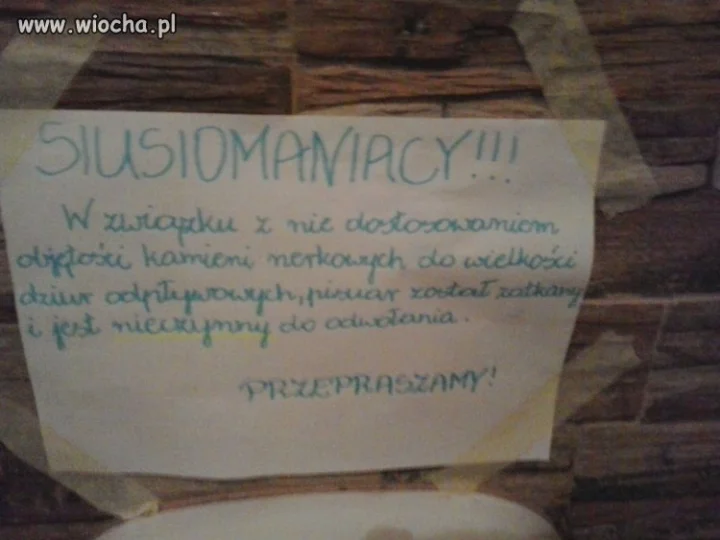 www.wiocha.pl
SIUSIOMANIACY!!!
W związku z nie dostosowaniem
objętości kamieni nerkowych do wielkości
dziur odpływowych, pisuar został zatkany
i jest nieczynny do odwołania.
PRZEPRASZAMY!